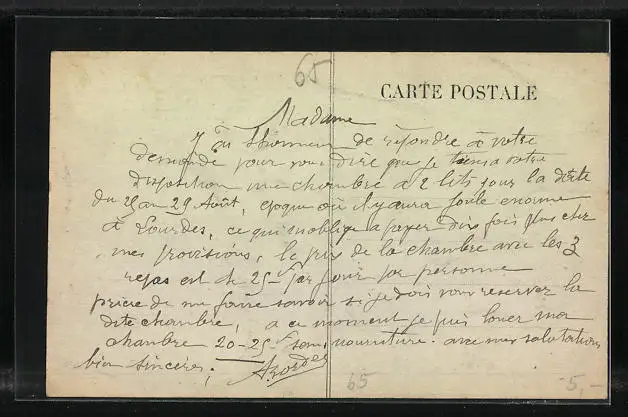 65
CARTE POSTALE
Madame
J'ai l'honneur de répondre à votre
demande pour vous dire que je tiens à votre
disposition une chambre à 2 lits pour la date
du 23 au 29 Août, époque où il y aura foule enorme
à Lourdes, ce qui m'oblige a payer dix fois plus cher
mes provisions, le prix de la chambre avec les 3
repas est de 25 f par jour par personne
prière de me faire savoir si je dois vous reserver la
dite chambre, a ce moment je puis louer ma
chambre 20-25 f sans nourriture. avec mes salutations
bien sincères.
65
5,-